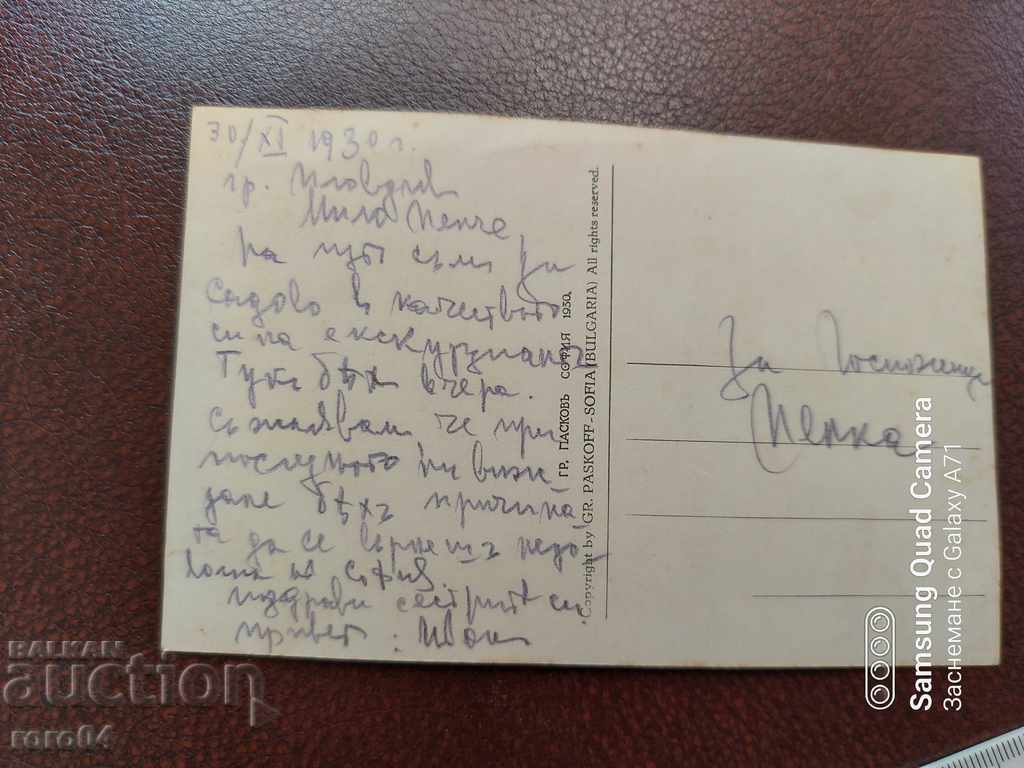 30/XI 1930 г.
гр. Пловдив
Мила Пенче,
На път съм за
Садово в качеството
си на екскурзианъ
Тукъ бѣх вчера.
Съжалявам че при
последното ни виж
дане бѣхъ причина
та да се върнешъ недо
волна в София.
поздрави сестритѣ си
привет. Иван
ГР. ПАСКОВЪ СОФИЯ 1930.
Copyright by GR. PASKOFF - SOFIA (BULGARIA) All rights reserved.
За Госпожица
Пенка
Samsung Quad Camera
Заснемане с Galaxy A71
BALKAN
auction
roro04